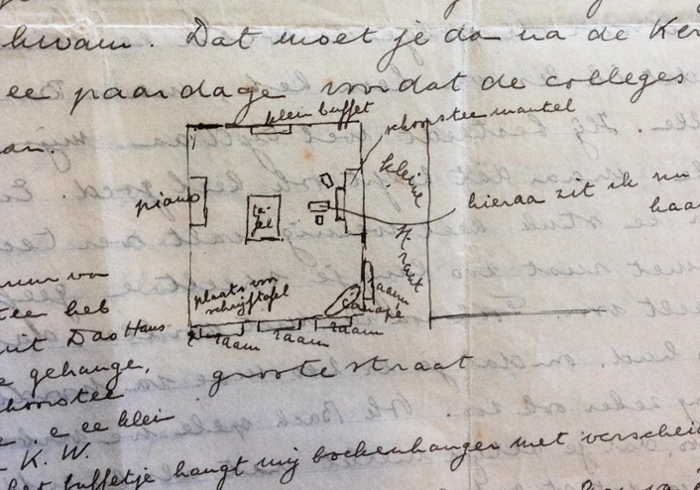 kwam. Dat moet je da na de Ker
ee paar dage voordat de colleges
an.
klein buffet
schoorstee mantel
piano
ta-
fel
kleine
straat
hieraa zit ik nu
haa
plaats vor
schrijftafel
canapé
raam
raam
raam
raam
groote straat
tee heb
uit Das Haus
gehange,
choorstee
e. e ee klein
- K. W.
het buffetje hangt mij boekenhanger met verscheid